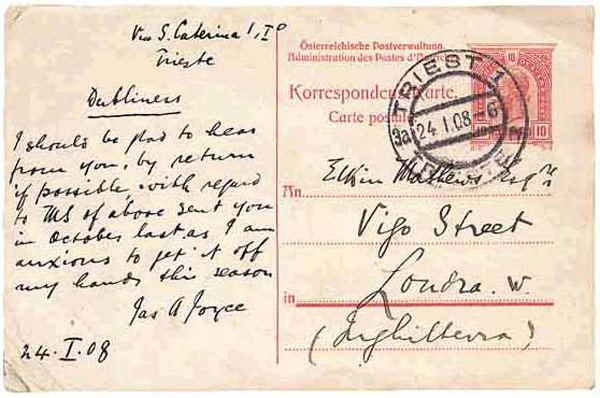 Via S. Caterina 1, I°
Trieste
Dubliners
I should be glad to hear
from you, by return
if possible, with regard
to MS of above sent you
in October last as I am
anxious to get it off
my hands this season
Jas A Joyce
24.I.08
Österreichische Postverwaltung.
Administration des Postes
Korrespondenzkarte.
Carte postale
10
10
10
TRIEST 1
3a 24.I.08 -6
An
Elkin Mathews Esqre
Vigo Street
in
Londra. W.
(Inghilterra)